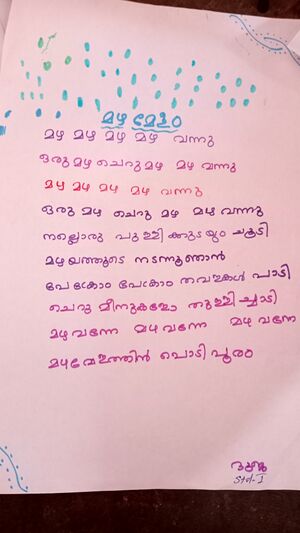 മഴ മേളം
മഴ മഴ മഴ മഴ വന്നു
ഒരു മഴ ചെറു മഴ മഴ വന്നു
മഴ മഴ മഴ മഴ വന്നു
ഒരു മഴ ചെറു മഴ മഴ വന്നു
നല്ലൊരു പുള്ളി ക്കുടയും ചൂടി
മഴയത്തൂടെ നടന്നൂഞാൻ
പേക്രോം പേക്രോം തവളകൾ പാടി
ചെറു മീനുകളോ തുള്ളി ച്ചാടി
മഴ വന്നേ മഴ വന്നേ മഴ വന്നേ
മഴമേളത്തിൻ പൊടി പൂരം
Std- I